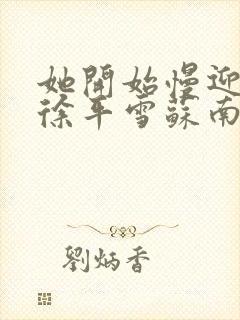 她開始慢迎
徐平雪蘇南
劉炳香